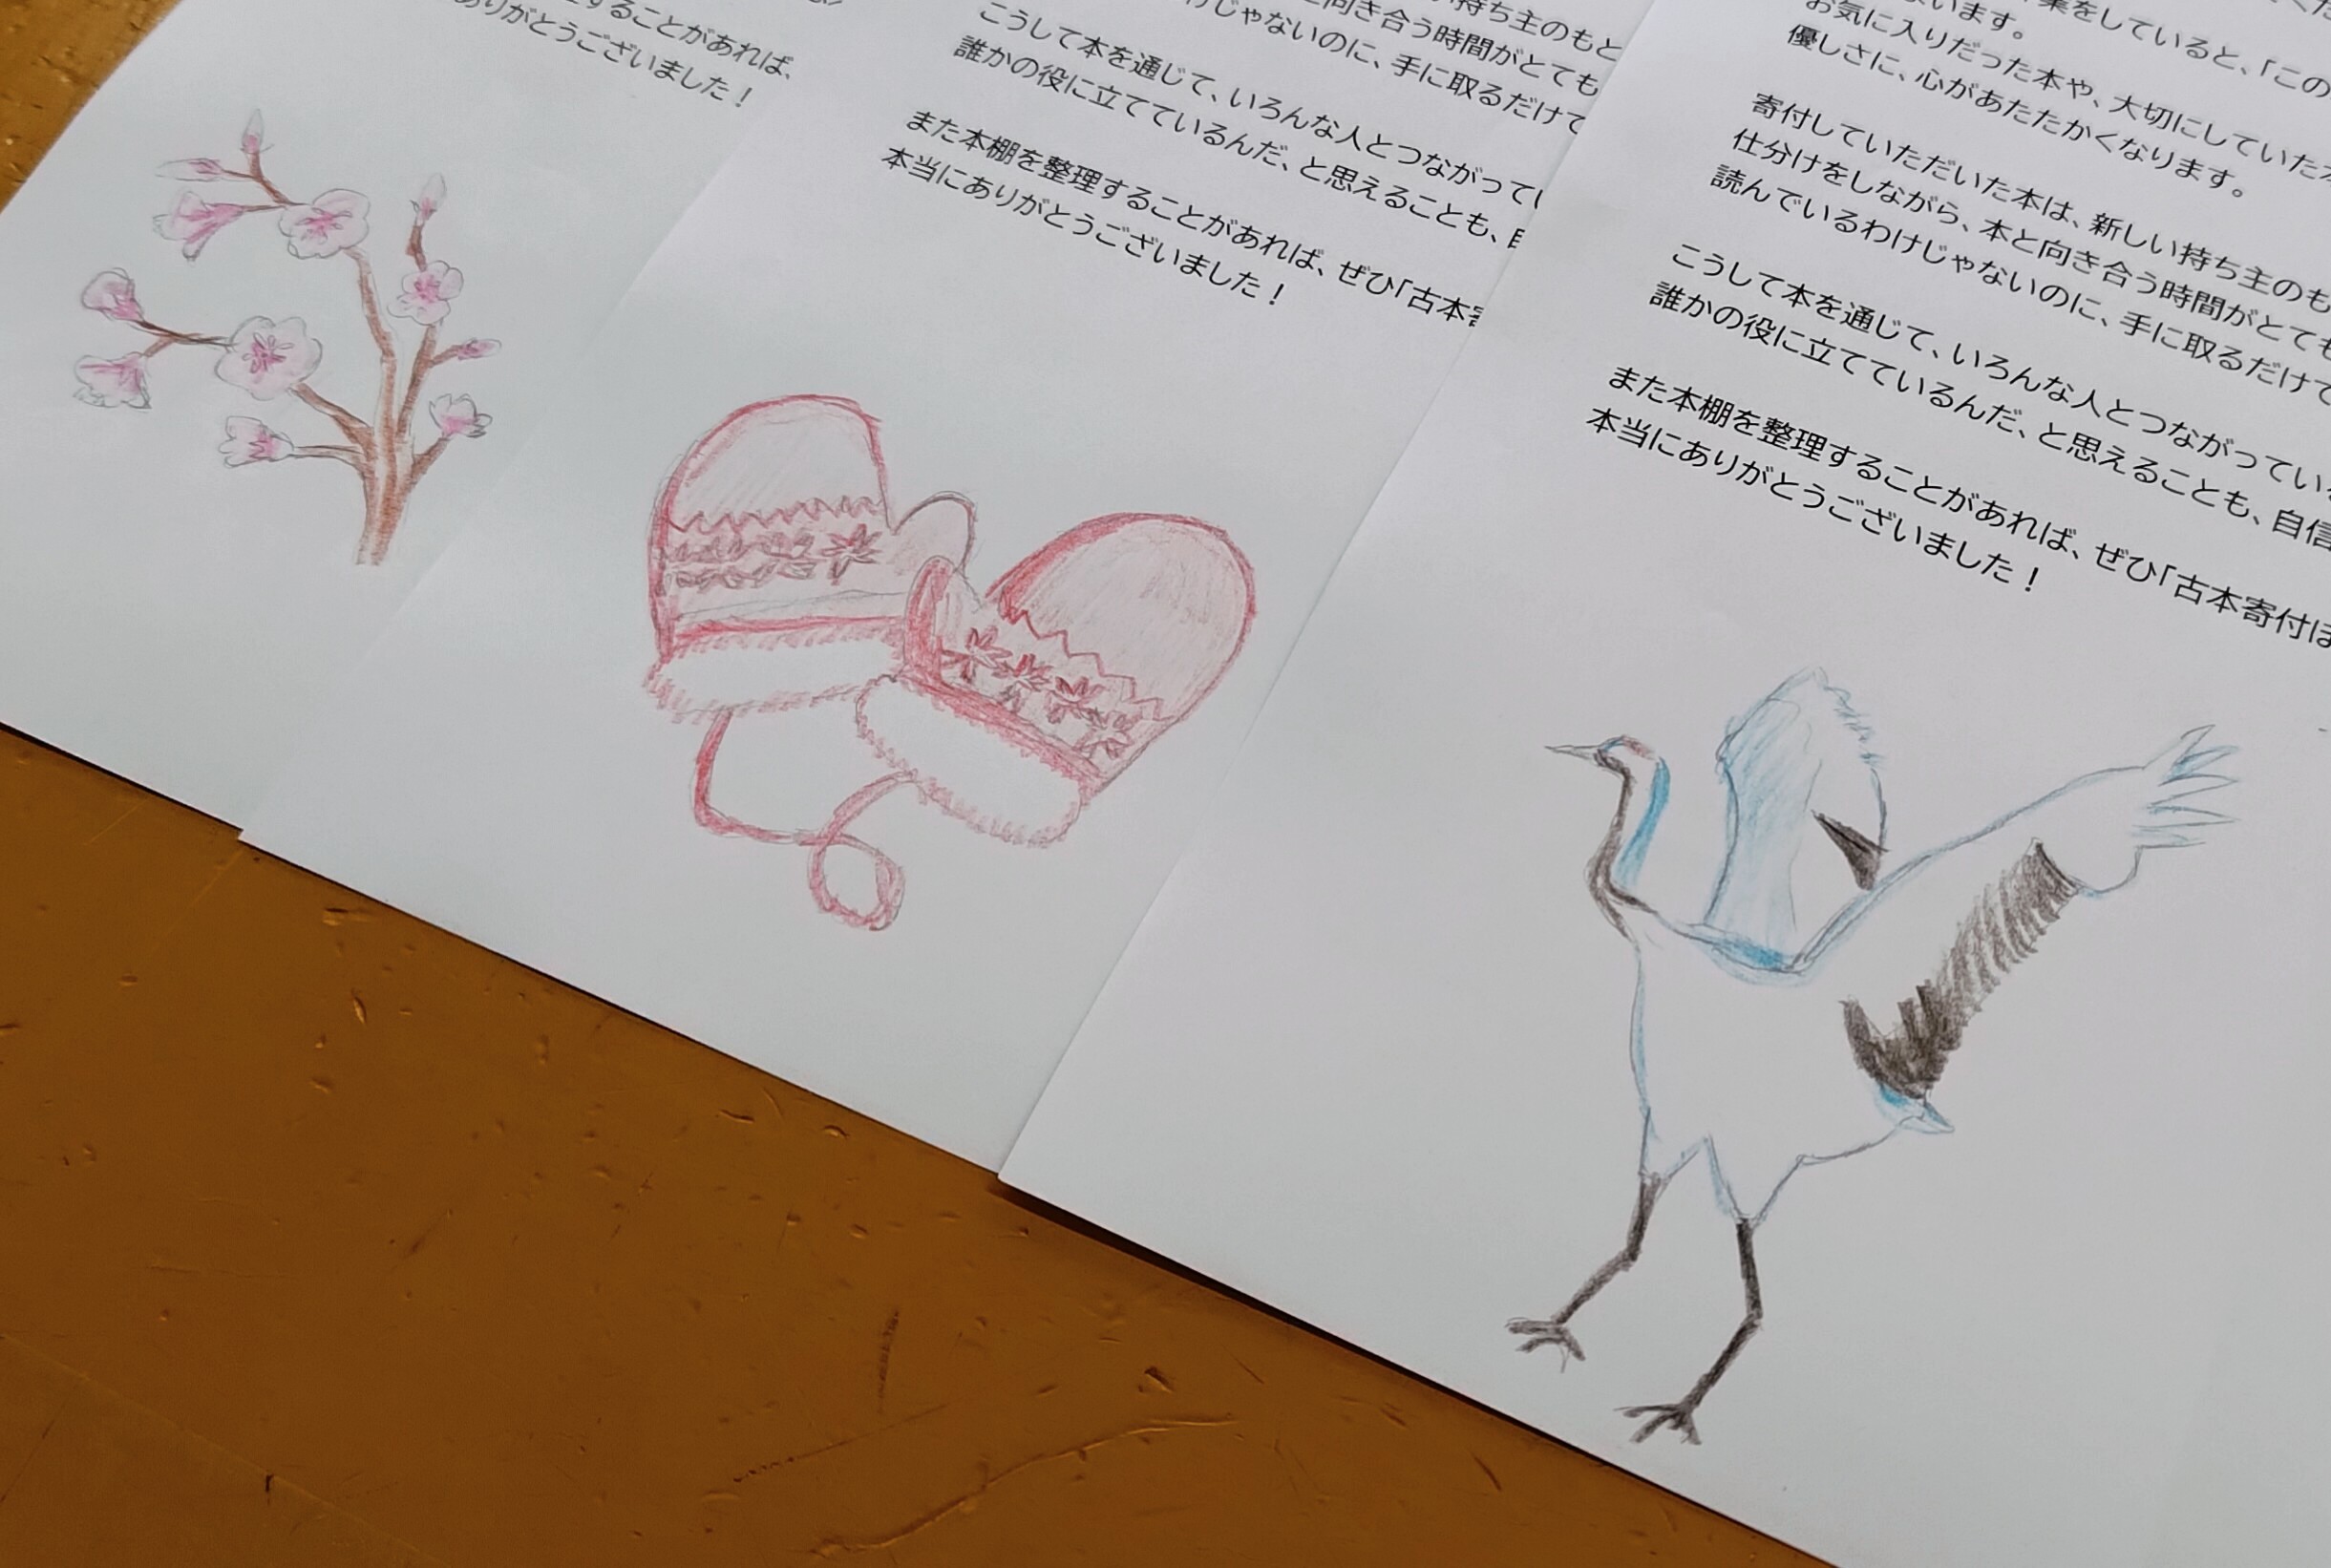 することがあれば、
ありがとうございました！
持ち主のもと
向き合う時間がとても
じゃないのに、手に取るだけで
こうして本を通じて、いろんな人とつながってい
誰かの役に立てているんだ、と思えることも、
また本棚を整理することがあれば、ぜひ「古本寄
本当にありがとうございました！
業をしていると、「この
います。
お気に入りだった本や、大切にしていた本
優しさに、心があたたかくなります。
寄付していただいた本は、新しい持ち主のも
仕分けをしながら、本と向き合う時間がとても
読んでいるわけじゃないのに、手に取るだけで
こうして本を通じて、いろんな人とつながっている
誰かの役に立てているんだ、と思えることも、自信
また本棚を整理することがあれば、ぜひ「古本寄付は
本当にありがとうございました！